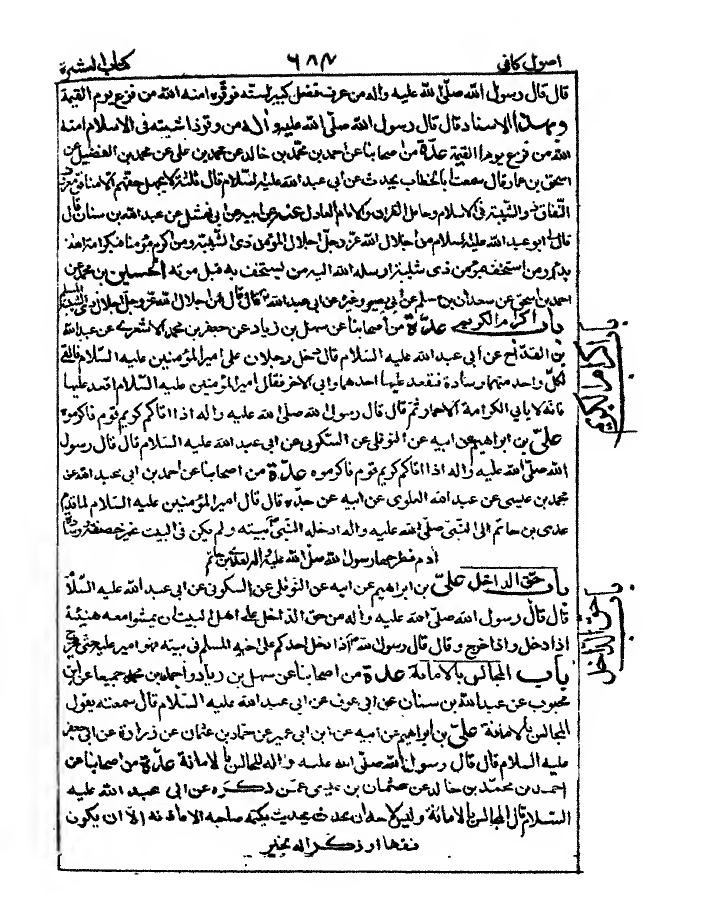 اصول كافى ٦٨٧ كتاب العشرة
قال قال رسول الله صلّى الله عليه واله من عرف فضل كبير لسنه فوقره امنه الله من فزع يوم القيمة
وبهذا الاسناد قال قال رسول الله صلّى الله عليه واله من وقر ذا شيبة فى الاسلام امنه
الله من فزع يوم القيمة عدّة من اصحابنا عن احمد بن محمّد بن خالد عن محمد بن على عن محمد بن الفضيل عن
اسحق بن عمار قال سمعت ابا الخطاب يحدث عن ابى عبد الله عليه السلام قال ثلثة لا يجهل حقهم الا منافق معروف
النّفاق ذو الشيبة فى الاسلام وحامل القران والامام العادل عنه عن ابيه عن ابى نهشل عن عبد الله بن سنان قال
قال لى ابو عبد الله عليه السلام من اجلال الله عزّ وجلّ اجلال المؤمن ذى الشيبة ومن اكرم مؤمنا فبكرامة الله
بدء ومن استخف بمؤمن ذى شيبة ارسل الله اليه من يستخف به قبل موته الحسين بن محمد عن
احمد بن اسحق عن سعدان بن مسلم عن ابى بصير وغيره عن ابى عبد الله قال قال من اجلال الله عزّ وجلّ اجلال ذى الشيبة المسلم
باب اكرام الكريم عدّة من اصحابنا عن سهل بن زياد عن جعفر بن محمد الاشعرى عن عبد الله
بن القداح عن ابى عبد الله عليه السّلام قال دخل رجلان على امير المؤمنين عليه السّلام فالقى
لكلّ واحد منهما وسادة فقعد عليها احدهما وابى الاخر فقال امير المؤمنين عليه السّلام اقعد عليها
فانه لا يابى الكرامة الا حمار ثمّ قال قال رسول الله صلى الله عليه واله اذا اتاكم كريم قوم فاكرموه
علىّ بن ابراهيم عن ابيه عن النوفلى عن السكونى عن ابى عبد الله عليه السلام قال قال رسول
الله صلّى الله عليه واله اذا اتاكم كريم قوم فاكرموه عدّة من اصحابنا عن احمد بن ابى عبد الله عن
محمد بن عيسى عن عبد الله العلوى عن ابيه عن جدّه قال قال امير المؤمنين عليه السّلام لما قدم
عدى بن حاتم الى النّبى صلّى الله عليه واله ادخله النّبى بيته ولم يكن فى البيت غير خصفة ووسادة
ادم فطرحها رسول الله صلّى الله عليه واله لعدى بن حاتم
باب حق الداخل علىّ بن ابراهيم عن ابيه عن النوفلى عن السكونى عن ابى عبد الله عليه السّلا
قال قال رسول الله صلّى الله عليه واله من حق الداخل على اهل البيت ان يمشوا معه هنيئة
اذا دخل واذا خرج وقال قال رسول الله اذا دخل احدكم على اخيه المسلم فى بيته فهو امير عليه حتى يخرج
باب المجالس بالامانة عدة من اصحابنا عن سهل بن زياد واحمد بن محمد جميعا عن ابن
محبوب عن عبد الله بن سنان عن ابى عوف عن ابى عبد الله عليه السّلام قال سمعته يقول
المجالس بالامانة علىّ بن ابراهيم عن ابيه عن ابن ابى عمير عن حماد بن عثمان عن زرارة عن ابى جعفر
عليه السلام قال قال رسول الله صلّى الله عليه واله المجالس بالامانة عدّة من اصحابنا عن
احمد بن محمد بن خالد عن عثمان بن عيسى عمّن ذكره عن ابى عبد الله عليه
السّلام قال المجالس بالامانة وليس لاحد ان يحدث بحديث يكتمه صاحبه الا باذنه الّا ان يكون
فقها او ذكرا له بخير
باب اكرام الكريم
باب حق الداخل